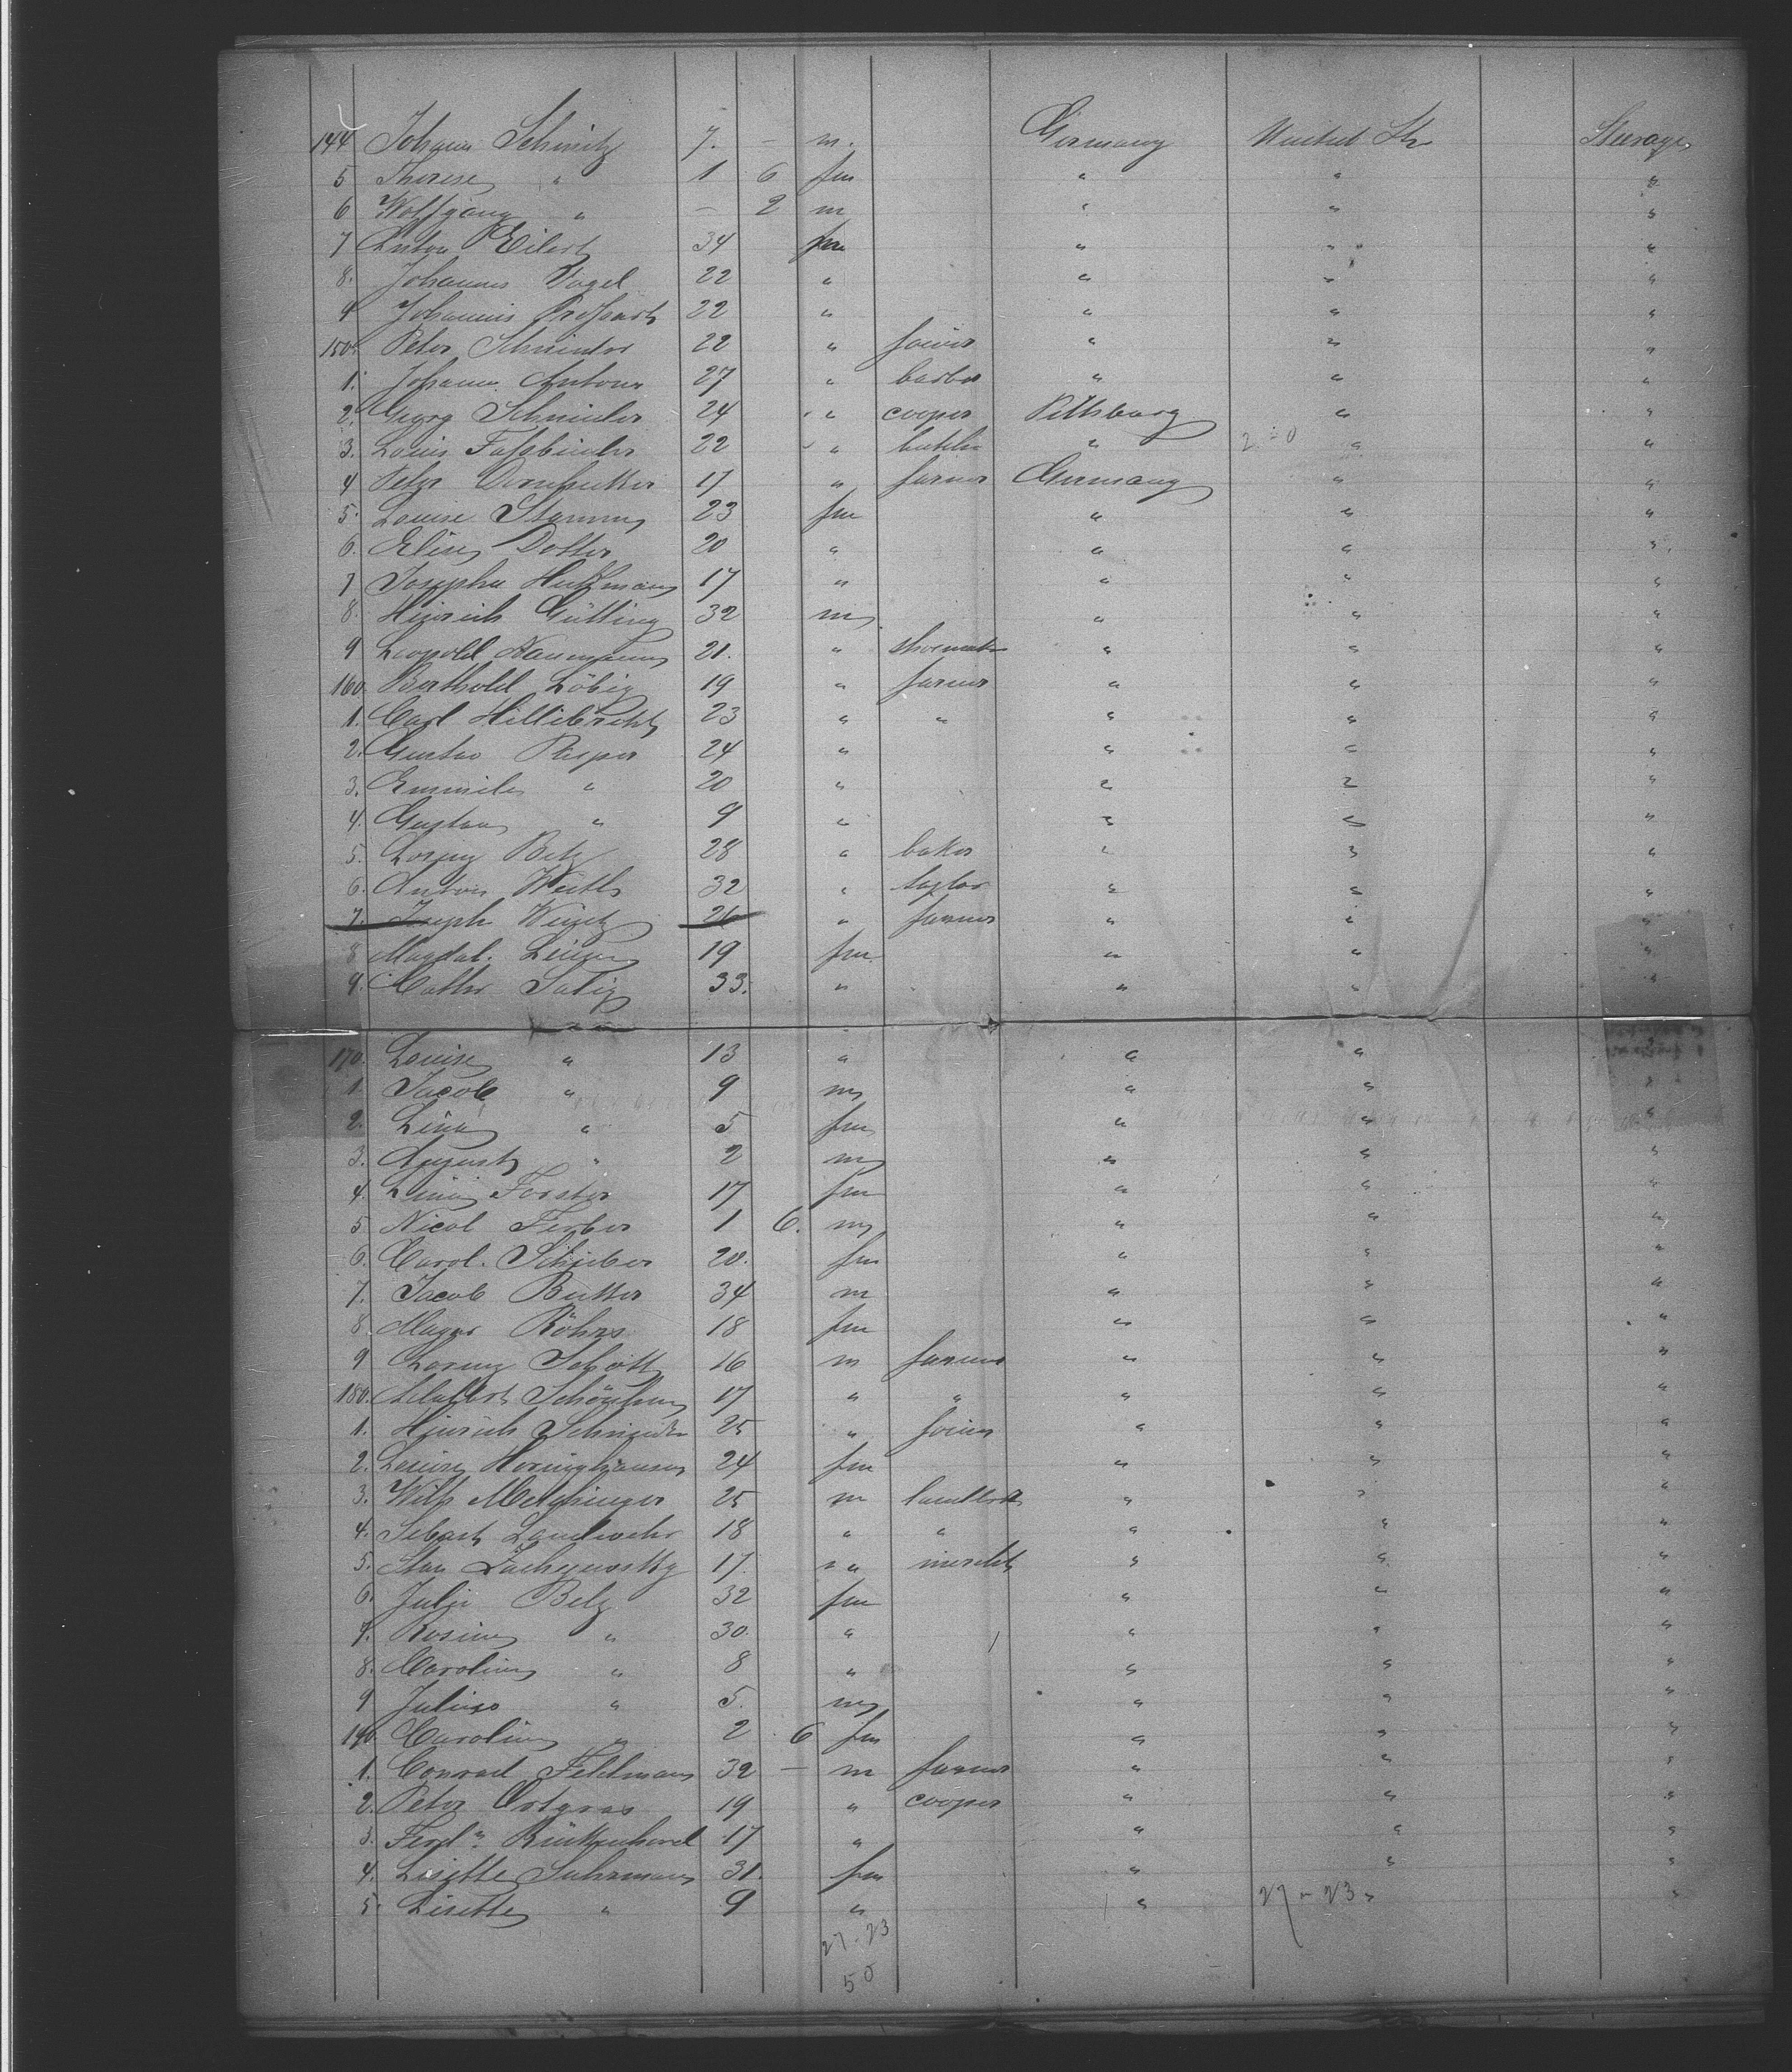 144 Johann Schmitz 7. – m. Germany United St Steerage
5 Therese " 1 6 fm " " "
6 Wolfgang " – 2 m " " "
7 Anton Eilert 34 fm " " "
8. Johannes Vogel 22 " " " "
9 Johannes 22 " " " "
150. Peter Schneider 22 " joiner " " "
1. Johann Antons 27 " barber " " "
2. Georg Schneider 24 " cooper Pittsburg " "
3. Louis Fassbinder 22 " butcher " " "
4 Peter 17 " farmer Germany " "
5. Louise Stamm 23 fm " " "
6. Elise Dotter 20 " " " "
7 Josepha Huffmann 17 " " " "
8. Heinrich Gütting 32 m " " "
9 Leopold Naumann 21. " shoemaker " " "
160. Berthold Löbig 19 " farmer " " "
1. Carl Hillebrecht 23 " " " " "
2. Gustav Pieper 24 " " " "
3. Emmile " 20 " " " "
4. Gustav " 9 " " " "
5. Lorenz Betz 28 " baker " " "
6. Anton Werth 32 " taylor " " "
7. Joseph 26 " farmer " " "
8 Magdal. 19 fm " " "
9. Cathr Salig 33. " " " "
170. Louise " 13 " " " "
1. Jacob " 9 m " " "
2. Lina " 5 fm " " "
3. August " 2 m " " "
4. Lina Forster 17 fm " " "
5 Nicol Ferber 1 6. m " " "
6. Carol. Schieber 20. fm " " "
7. Jacob Butter 34 m " " "
8. Magar Röhrs 18 fm " " "
9 Lorenz Schott 16 m farmer " " "
180. 17 " " " " "
1. Heinrich Schneider 25 " joiner " " "
2. Louise Horninghausen 24 fm " " "
3. Wilh 25 m " " "
4. Sebast Landwehr 18 " " " " "
5. Stan 17. " mercht " " "
6. Julie Belz 32 fm " " "
7. Rosine " 30. " " " "
8. Caroline " 8 " " " "
9 Julius " 5. m " " "
190 Caroline " 2 6 fm " " "
1. Conrad Feldmann 32 – m farmer " " "
2. Peter Ortgras 19 " cooper " " "
3. Ferdn. 17 " " " "
4. Lisette Suhrmann 31. fm " " "
5 Lisette " 9 " " 27 – 23 " "
27 – 23
50